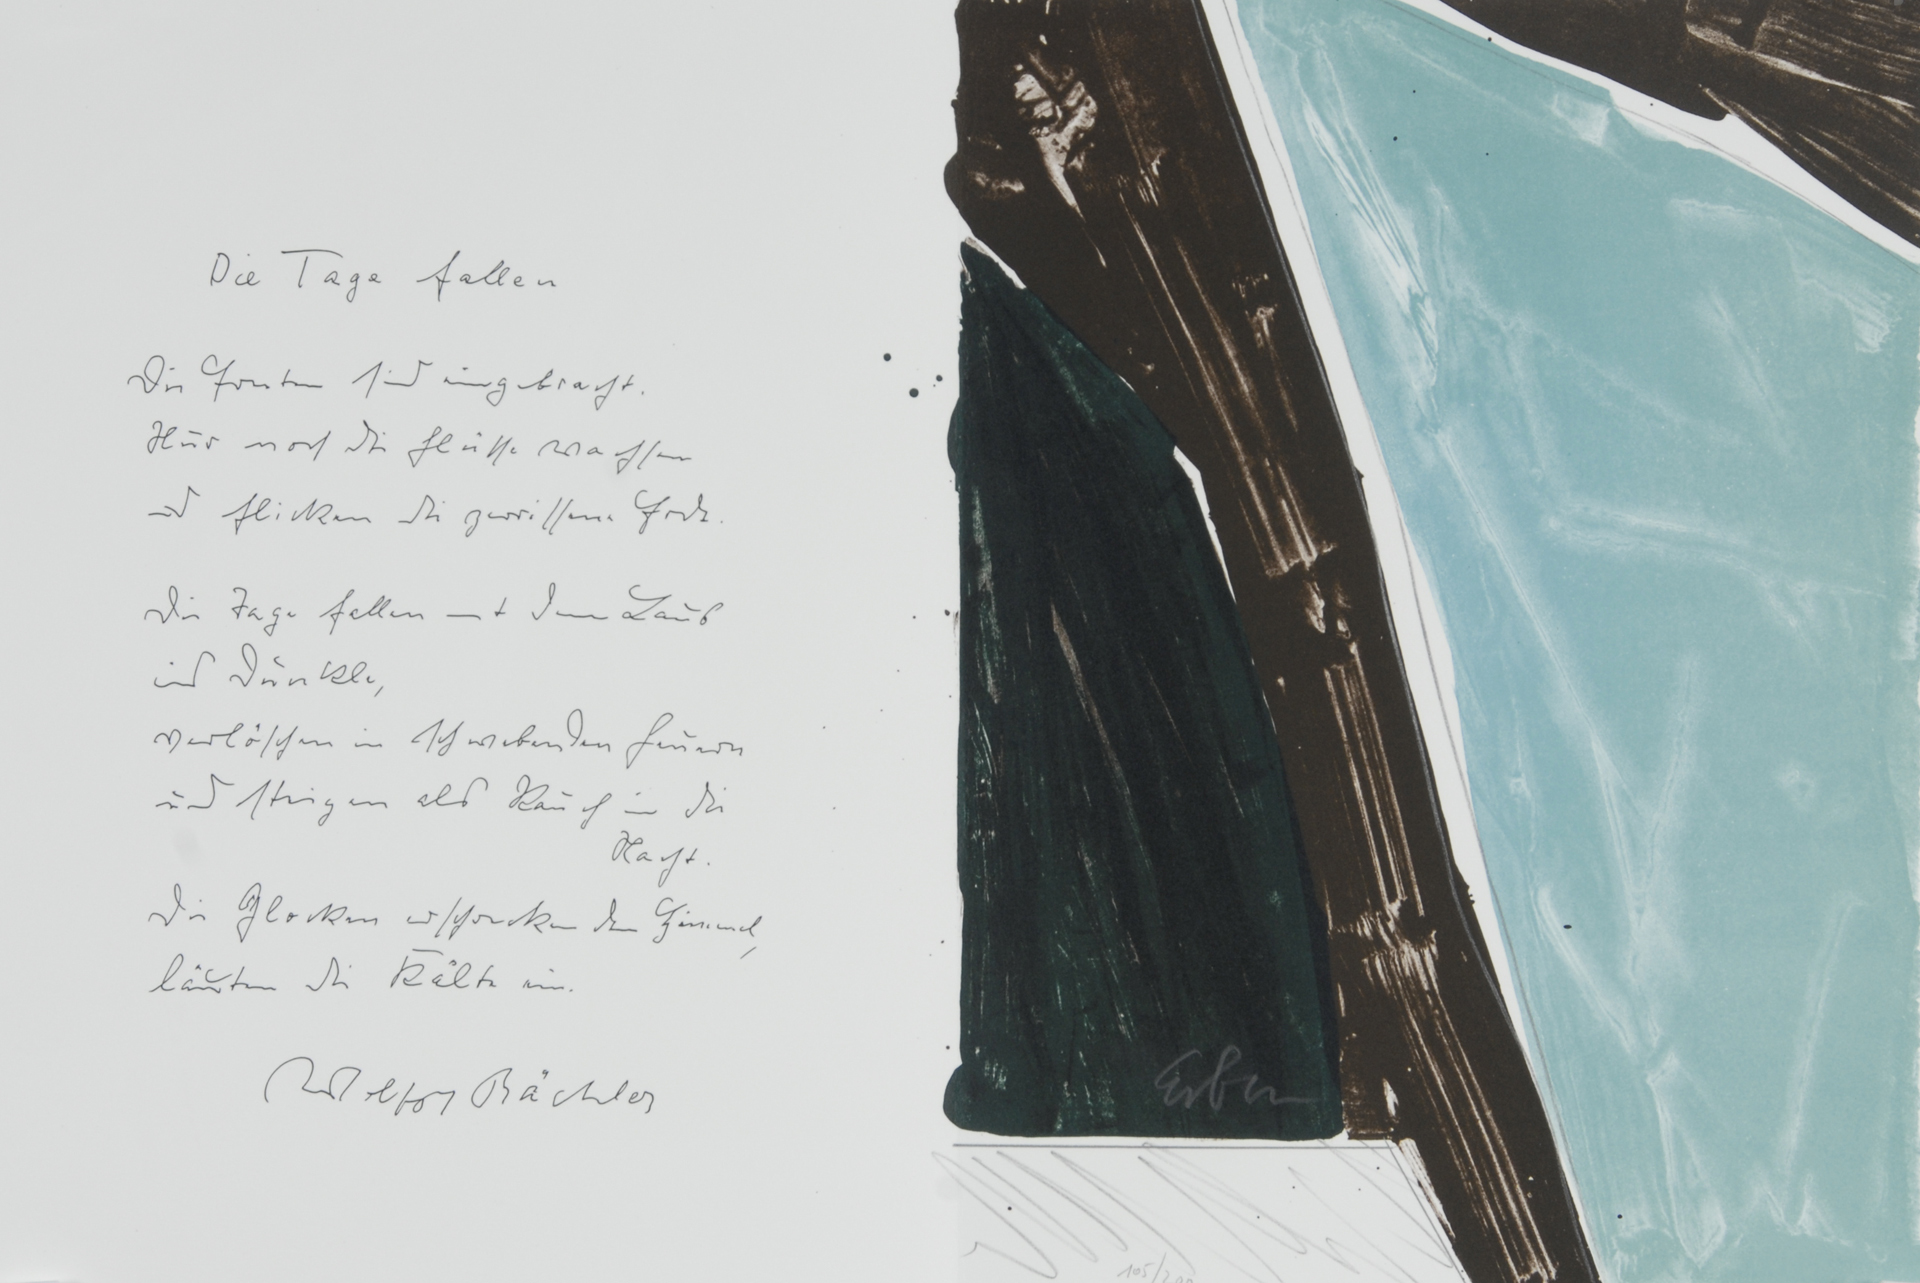 Die Tage fallen
Die Ernten sind eingebracht.
Nur noch die Flüsse wachsen
und flicken die zerrissene Erde.
Die Tage fallen mit dem Laub
ins Dunkle,
verlöschen in schwebenden Feuern
und steigen als Rauch in die
Nacht.
Die Glocken erschrecken den Himmel,
läuten die Kälte ein.
Wolfgang Bächler
Erben
105/200